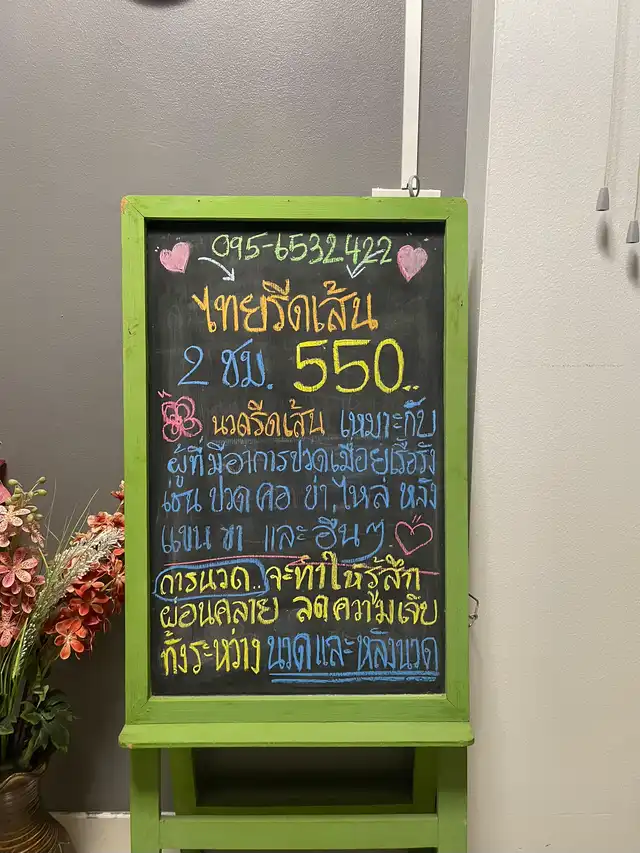 095-6532422
ไทยรีดเส้น
2 ชม. 550..
นวดรีดเส้น เหมาะกับ
ผู้ที่มีอาการปวดเมื่อยเรื้อรัง
เช่น ปวด คอ บ่า,ไหล่ หลัง
แขน ขา และ อื่นๆ
การนวด.. จะทำให้รู้สึก
ผ่อนคลาย ลดความเจ็บ
ทั้งระหว่าง นวดและหลังนวด